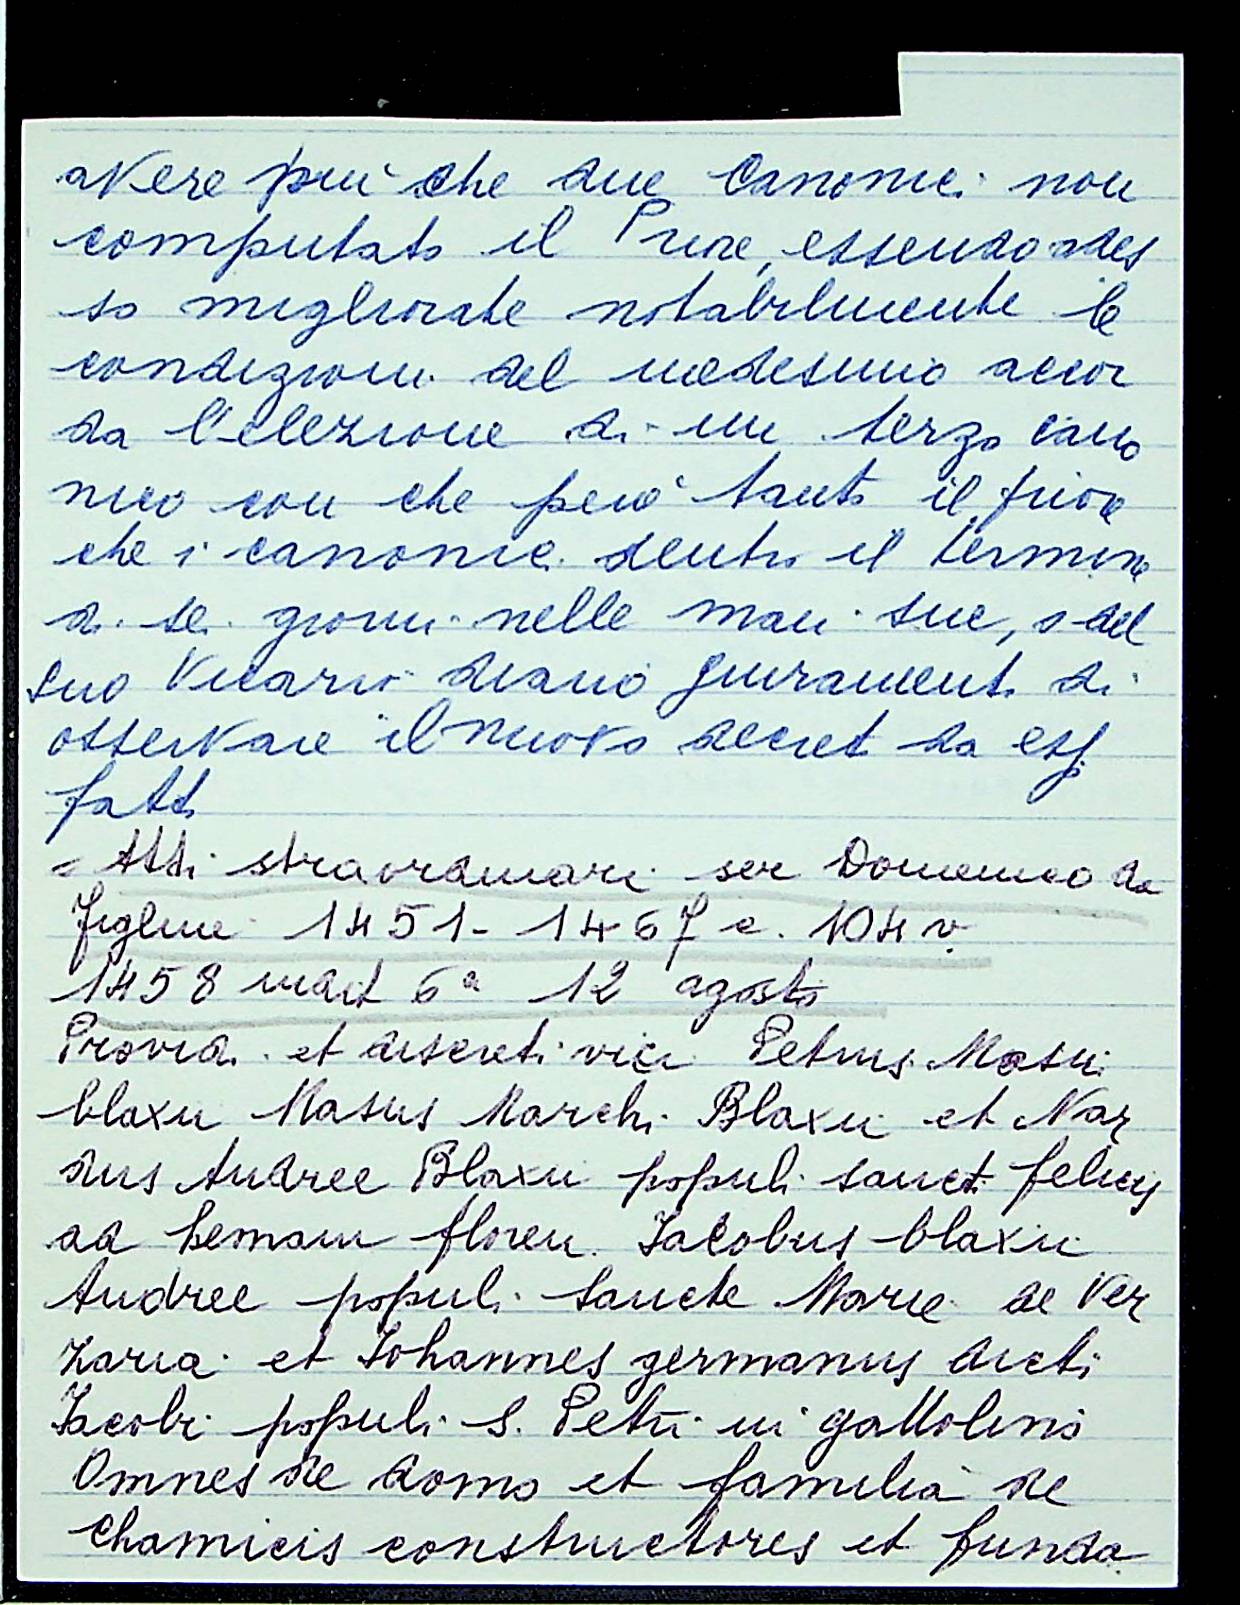 avere più che due Canonici non
computato il Priore, essendo ades
so migliorate notabilmente le
condizioni del medesimo accor
da l'elezione di un terzo cano
nico con che però tanto il priore
che i canonici dentro il termine
di sei giorni nelle mani sue, o del
suo Vicario diano giuramento di
osservare il nuovo decreto da essi
fatto
= Atti straordinari ser Domenico da
Figline 1451-1467 c. 104 v.
1458 ind 6a 12 agosto
Providi et discreti viri Petrus Masii
blaxii Masus Marchi Blaxii et Nar
dus Andree Blaxii populi sancti felicis
ad hemam floren. Jacobus blaxii
Andree populi Sancte Marie de Ver
zaria et Johannes germanus dicti
Jacobi populi S. Petri in gattolino
Omnes de domo et familia de
Chamicis constructores et funda